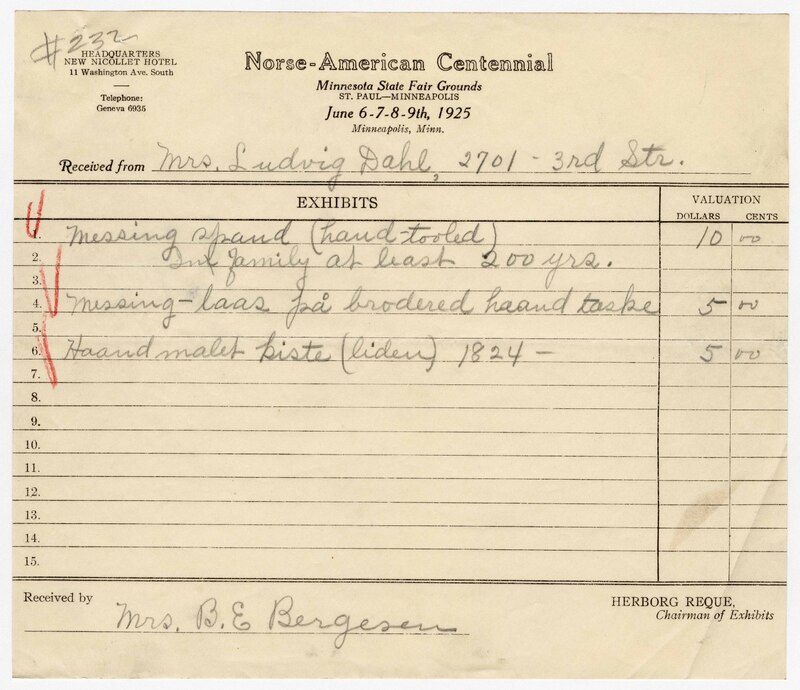 #232
HEADQUARTERS
NEW NICOLLET HOTEL
11 Washington Ave. South
Telephone:
Geneva 6935
Norse-American Centennial
Minnesota State Fair Grounds
ST. PAUL—MINNEAPOLIS
June 6-7-8-9th, 1925
Minneapolis, Minn.
Received from Mrs. Ludvig Dahl, 2701 - 3rd Str.
EXHIBITS VALUATION
DOLLARS CENTS
1. Messing spand (hand-tooled) 10 00
2. In family at least 200 yrs.
3.
4. Messing-laas på brodered haand taske 5 00
5.
6. Haand malet kiste (liden) 1824 - 5 00
7.
8.
9.
10.
11.
12.
13.
14.
15.
Received by Mrs. B. E Bergesen
HERBORG REQUE,
Chairman of Exhibits